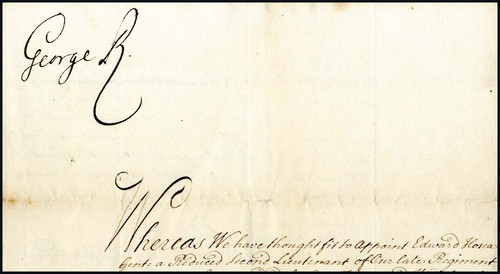 George R.
Whereas We have thought fit to appoint Edward Howa
Gent: a Reduced Second Lieutenant of Our late Regiment